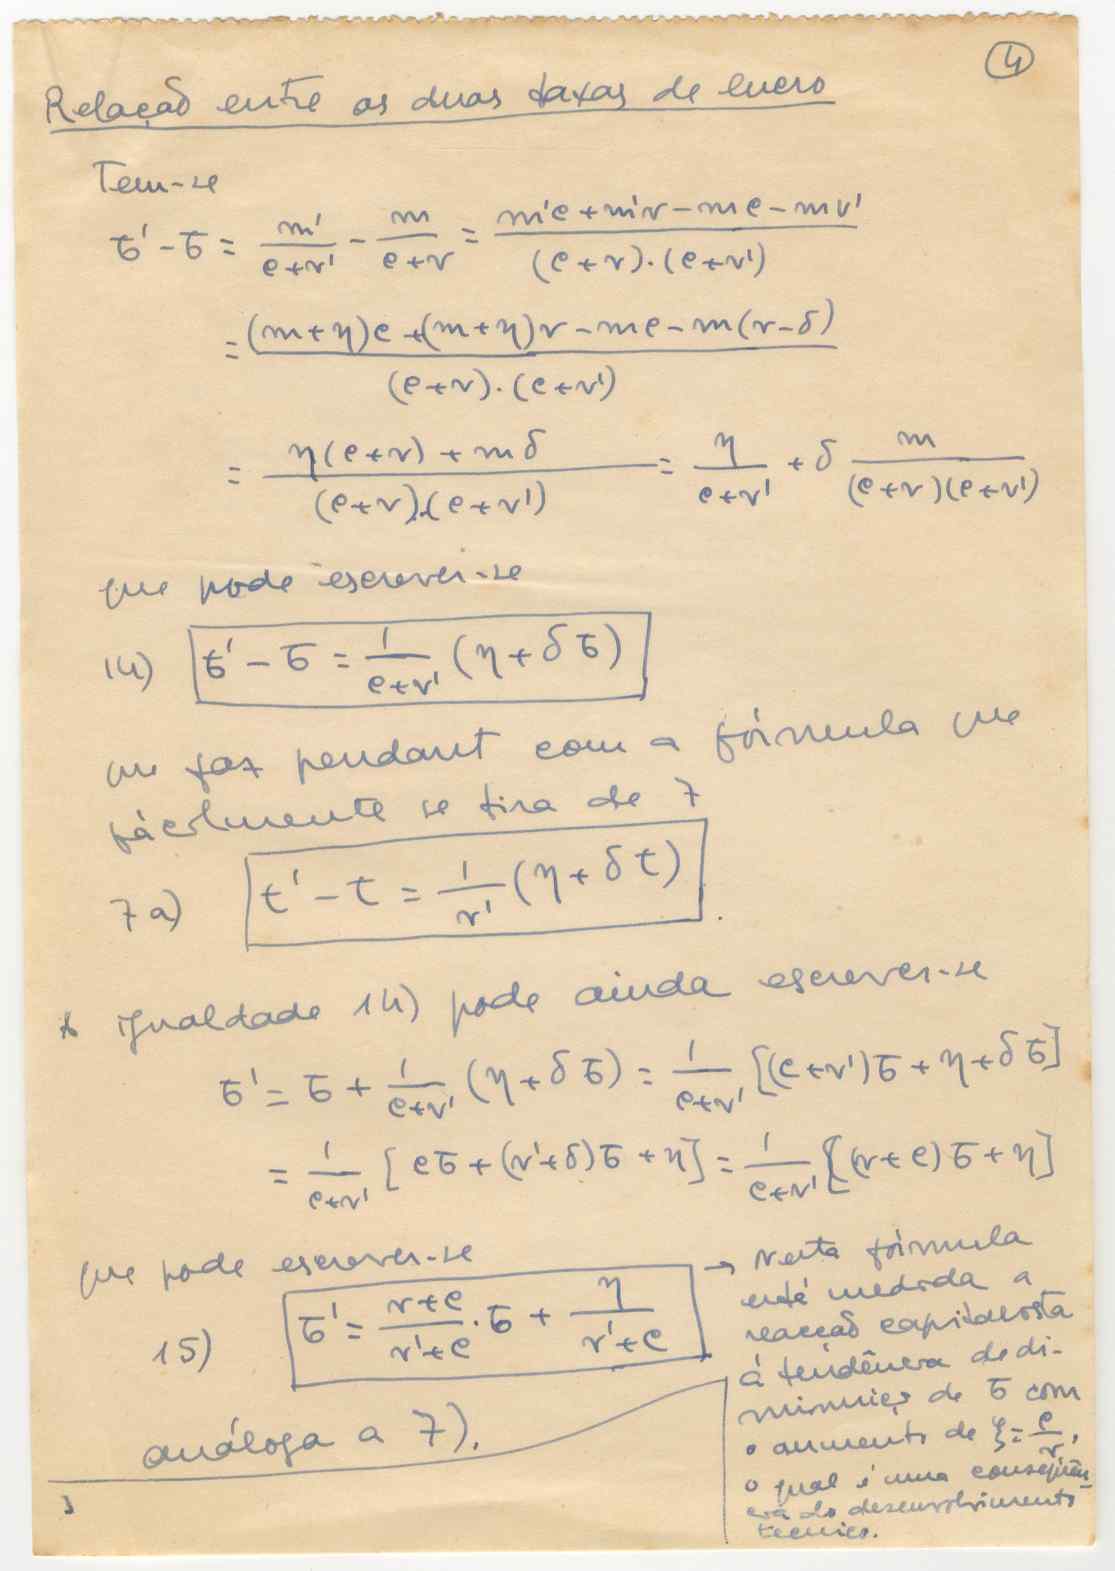 4
Relação entre as duas taxas de lucro
Tem-se
τ̄' - τ̄ = m'/(c+v') - m/(c+v) = (m'c+m'v-mc-mv')/((c+v).(c+v'))
= ((m+η)c+(m+η)v-mc-m(v-δ))/((c+v).(c+v'))
= (η(c+v)+mδ)/((c+v).(c+v')) = η/(c+v') + δ m/((c+v)(c+v'))
que pode escrever-se
14) τ̄' - τ̄ = 1/(c+v') (η+δτ̄)
que faz pendant com a fórmula que
fàcilmente se tira de 7
7a) t' - t = 1/v' (η+δt).
A igualdade 14) pode ainda escrever-se
τ̄' = τ̄ + 1/(c+v') (η+δτ̄) = 1/(c+v') [(c+v')τ̄+η+δτ̄]
= 1/(c+v') [cτ̄+(v'+δ)τ̄+η] = 1/(c+v') [(v+c)τ̄+η]
que pode escrever-se
15) τ̄' = (v+c)/(v'+c) . τ̄ + η/(v'+c)
análoga a 7).
→ Nesta fórmula
está medida a
reacção capitalista
à tendência de di-
minuição de τ̄ com
o aumento de ξ = c/v,
o qual é uma consequên-
cia do desenvolvimento
técnico.